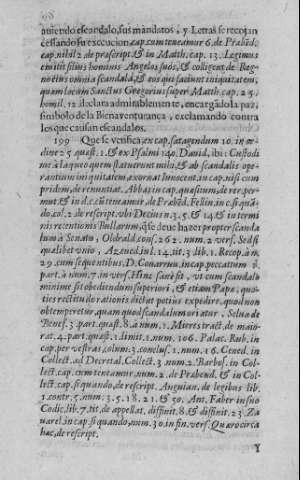 auiendo escandalo, sus mandatos, y Letras se recojan
cessando su execucion, cap. cum teneamur 6. de Præbēd.
cap. nihil 2. de præscript. & in Matth. cap. 13. Legimus
emittit filius hominis Angelos suos, & colligent de Reg-
no eius omnia scandala, & eos qui faciunt iniquitatem,
quam locum Sanctus Gregorius super Matth. cap. 25.
homil. 12. declara admirablemente, encargādo la paz,
simbolo de la Bienaventurança, exclamando contra
les que causan escandalos.
199 Que se verifica ex cap. satagendum 10. in or-
dine 25. quæst. 1. & ex Psalmi 140. David, ibi: Custodi
me à laqueo quem statuerunt mihi, & ab scandalis ope-
rantium iniquitatem exornat Innocent. in cap. nisi cum
pridem, de renuntiat. Abbas in cap. quæsitum, de rer. per-
mut. & in d. c. cū teneamur, de Præbēd. Fellin. in c. si quā-
do, col. 2. de rescript. vbi Decius n. 3. 5. & 14. & in termi
nis retentionis Bullarum, q̄ se deue hazer propter scanda
lum à Senatu, Oldrald. cons. 262. num. 2. vers. Sed si
qualibet vnio, Azeued. in l. 14. tit. 3. lib. 1. Recop. à n.
29. cum sequentibus, D. Couarruu. in cap. peccatum 2.
part. à num. 7. in vers. Hinc sanè fit, vt cum scandalo
minime sit obediendum superiori, & etiam Papæ, quo-
ties rectitudo rationis dictat potiùs expedire, quod non
obtemperetur, quam quod scandalum oriatur, Selua de
Benef. 3. part. quæst. 8. à num. 1. Mieres tract. de maio-
rat. 4. part. quæst. 1. limit. 1. num. 106. Palac. Rub. in
cap. per vestras, colum. 3. concluf. 1. num. 16. Cened. in
Collect. ad Decretal. Collect. 3. num. 2. Barbos. in Col-
lect. cap. cum teneamur, num. 2. de Præbend. & in Col-
lect. cap. si quando, de rescript. Anguian. de legibus lib.
1. contr. 5. num. 3. 5. 18. 21. & 30. Ant. Faber in suo
Codic. lib. 7. tit. de appellat. diffinit. 8. & diffinit. 23. Za
uarel. in cap. si quando, num. 30. in fin. vers. Quarocirca
hac, de rescript.
Y